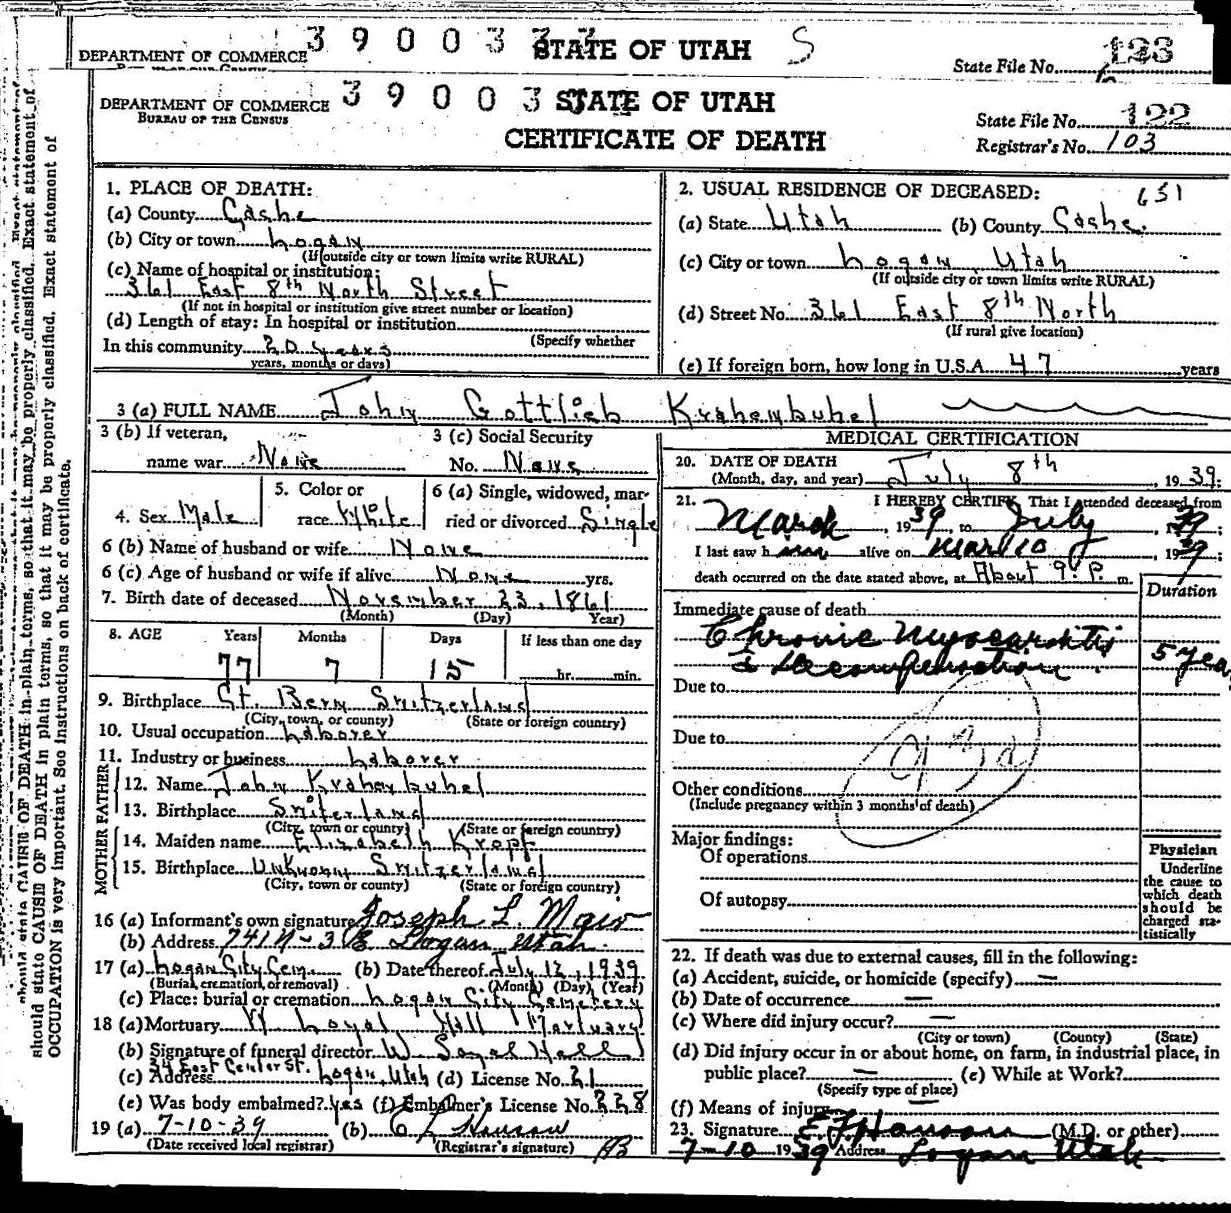 DEPARTMENT OF COMMERCE 390033 STATE OF UTAH S
State File No. 123
DEPARTMENT OF COMMERCE 39003 STATE OF UTAH
BUREAU OF THE CENSUS
CERTIFICATE OF DEATH
State File No. 122
Registrar's No. 103
should state CAUSE OF DEATH in plain terms, so that it may be properly classified. Exact statement of
OCCUPATION is very important. See instructions on back of certificate.
1. PLACE OF DEATH:
(a) County Cache
(b) City or town Logan
(If outside city or town limits write RURAL)
(c) Name of hospital or institution:
361 East 8th North Street
(If not in hospital or institution give street number or location)
(d) Length of stay: In hospital or institution
(Specify whether
In this community 20 years
years, months or days)
2. USUAL RESIDENCE OF DECEASED: 651
(a) State Utah (b) County Cache
(c) City or town Logan, Utah
(If outside city or town limits write RURAL)
(d) Street No. 361 East 8th North
(If rural give location)
(e) If foreign born, how long in U.S.A. 47 years
3 (a) FULL NAME John Gottlieb Krahenbuhel
3 (b) If veteran, 3 (c) Social Security
name war None No. None
4. Sex Male 5. Color or race White 6 (a) Single, widowed, married or divorced Single
6 (b) Name of husband or wife None
6 (c) Age of husband or wife if alive None yrs.
7. Birth date of deceased November 23, 1861
(Month) (Day) Year)
8. AGE Years Months Days If less than one day
77 7 15 hr. min.
9. Birthplace Ct. Bern Switzerland
(City, town, or county) (State or foreign country)
10. Usual occupation Laborer
11. Industry or business Laborer
FATHER
12. Name John Krahenbuhel
13. Birthplace Switzerland
(City, town or county) (State or foreign country)
MOTHER
14. Maiden name Elizabeth Kropf
15. Birthplace Unknown Switzerland
(City, town or county) (State or foreign country)
16 (a) Informant's own signature Joseph L. Mair
(b) Address 741 N - 3 E Logan, Utah.
17 (a) Logan City Cem. (b) Date thereof July 12, 1939
(Burial, cremation, or removal) (Month) (Day) (Year)
(c) Place: burial or cremation Logan City Cemetery
18 (a) Mortuary W. Loyal Hall Mortuary
(b) Signature of funeral director W. Loyal Hall
34 East Center St.
(c) Address Logan, Utah (d) License No. 21
(e) Was body embalmed? Yes (f) Embalmer's License No. 228
19 (a) 7-10-39 (b) C L Hanson
(Date received local registrar) (Registrar's signature)
MEDICAL CERTIFICATION
20. DATE OF DEATH
(Month, day, and year) July 8th, 1939.
21. I HEREBY CERTIFY, That I attended deceased from
March, 1939 to July, 1939;
I last saw him alive on Mar 20, 1939
death occurred on the date stated above, at About 9. P. m.
Duration
Immediate cause of death
Chronic Myocarditis 5 year
& Decompensation
Due to
Due to
93d
Other conditions
(Include pregnancy within 3 months of death)
Major findings:
Of operations
Of autopsy
Physician
Underline the cause to which death should be charged statistically
22. If death was due to external causes, fill in the following:
(a) Accident, suicide, or homicide (specify) —
(b) Date of occurrence —
(c) Where did injury occur? —
(City or town) (County) (State)
(d) Did injury occur in or about home, on farm, in industrial place, in
public place? — (e) While at Work?
(Specify type of place)
(f) Means of injury
23. Signature E J Hanson (M.D. or other)
7-10 1939 Address Logan Utah